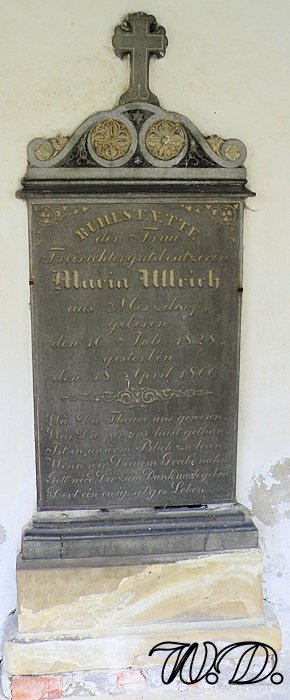 RUHLSTÆTTE
der Frau
Freirichtergutsbesitzerin
Maria Ullrich
aus Merzdorf,
geboren
den 10 Juli 1828,
gestorben
den 18 April 1866
Was Du Theure uns gewesen
Was Du für uns hast gethan
Ist in unserm Blick zu lesen
Wenn wir Deinem Grabe nahn
Gott wird Dir zum Dank auch geben
Dort ein ewig seliges Leben
W.D.